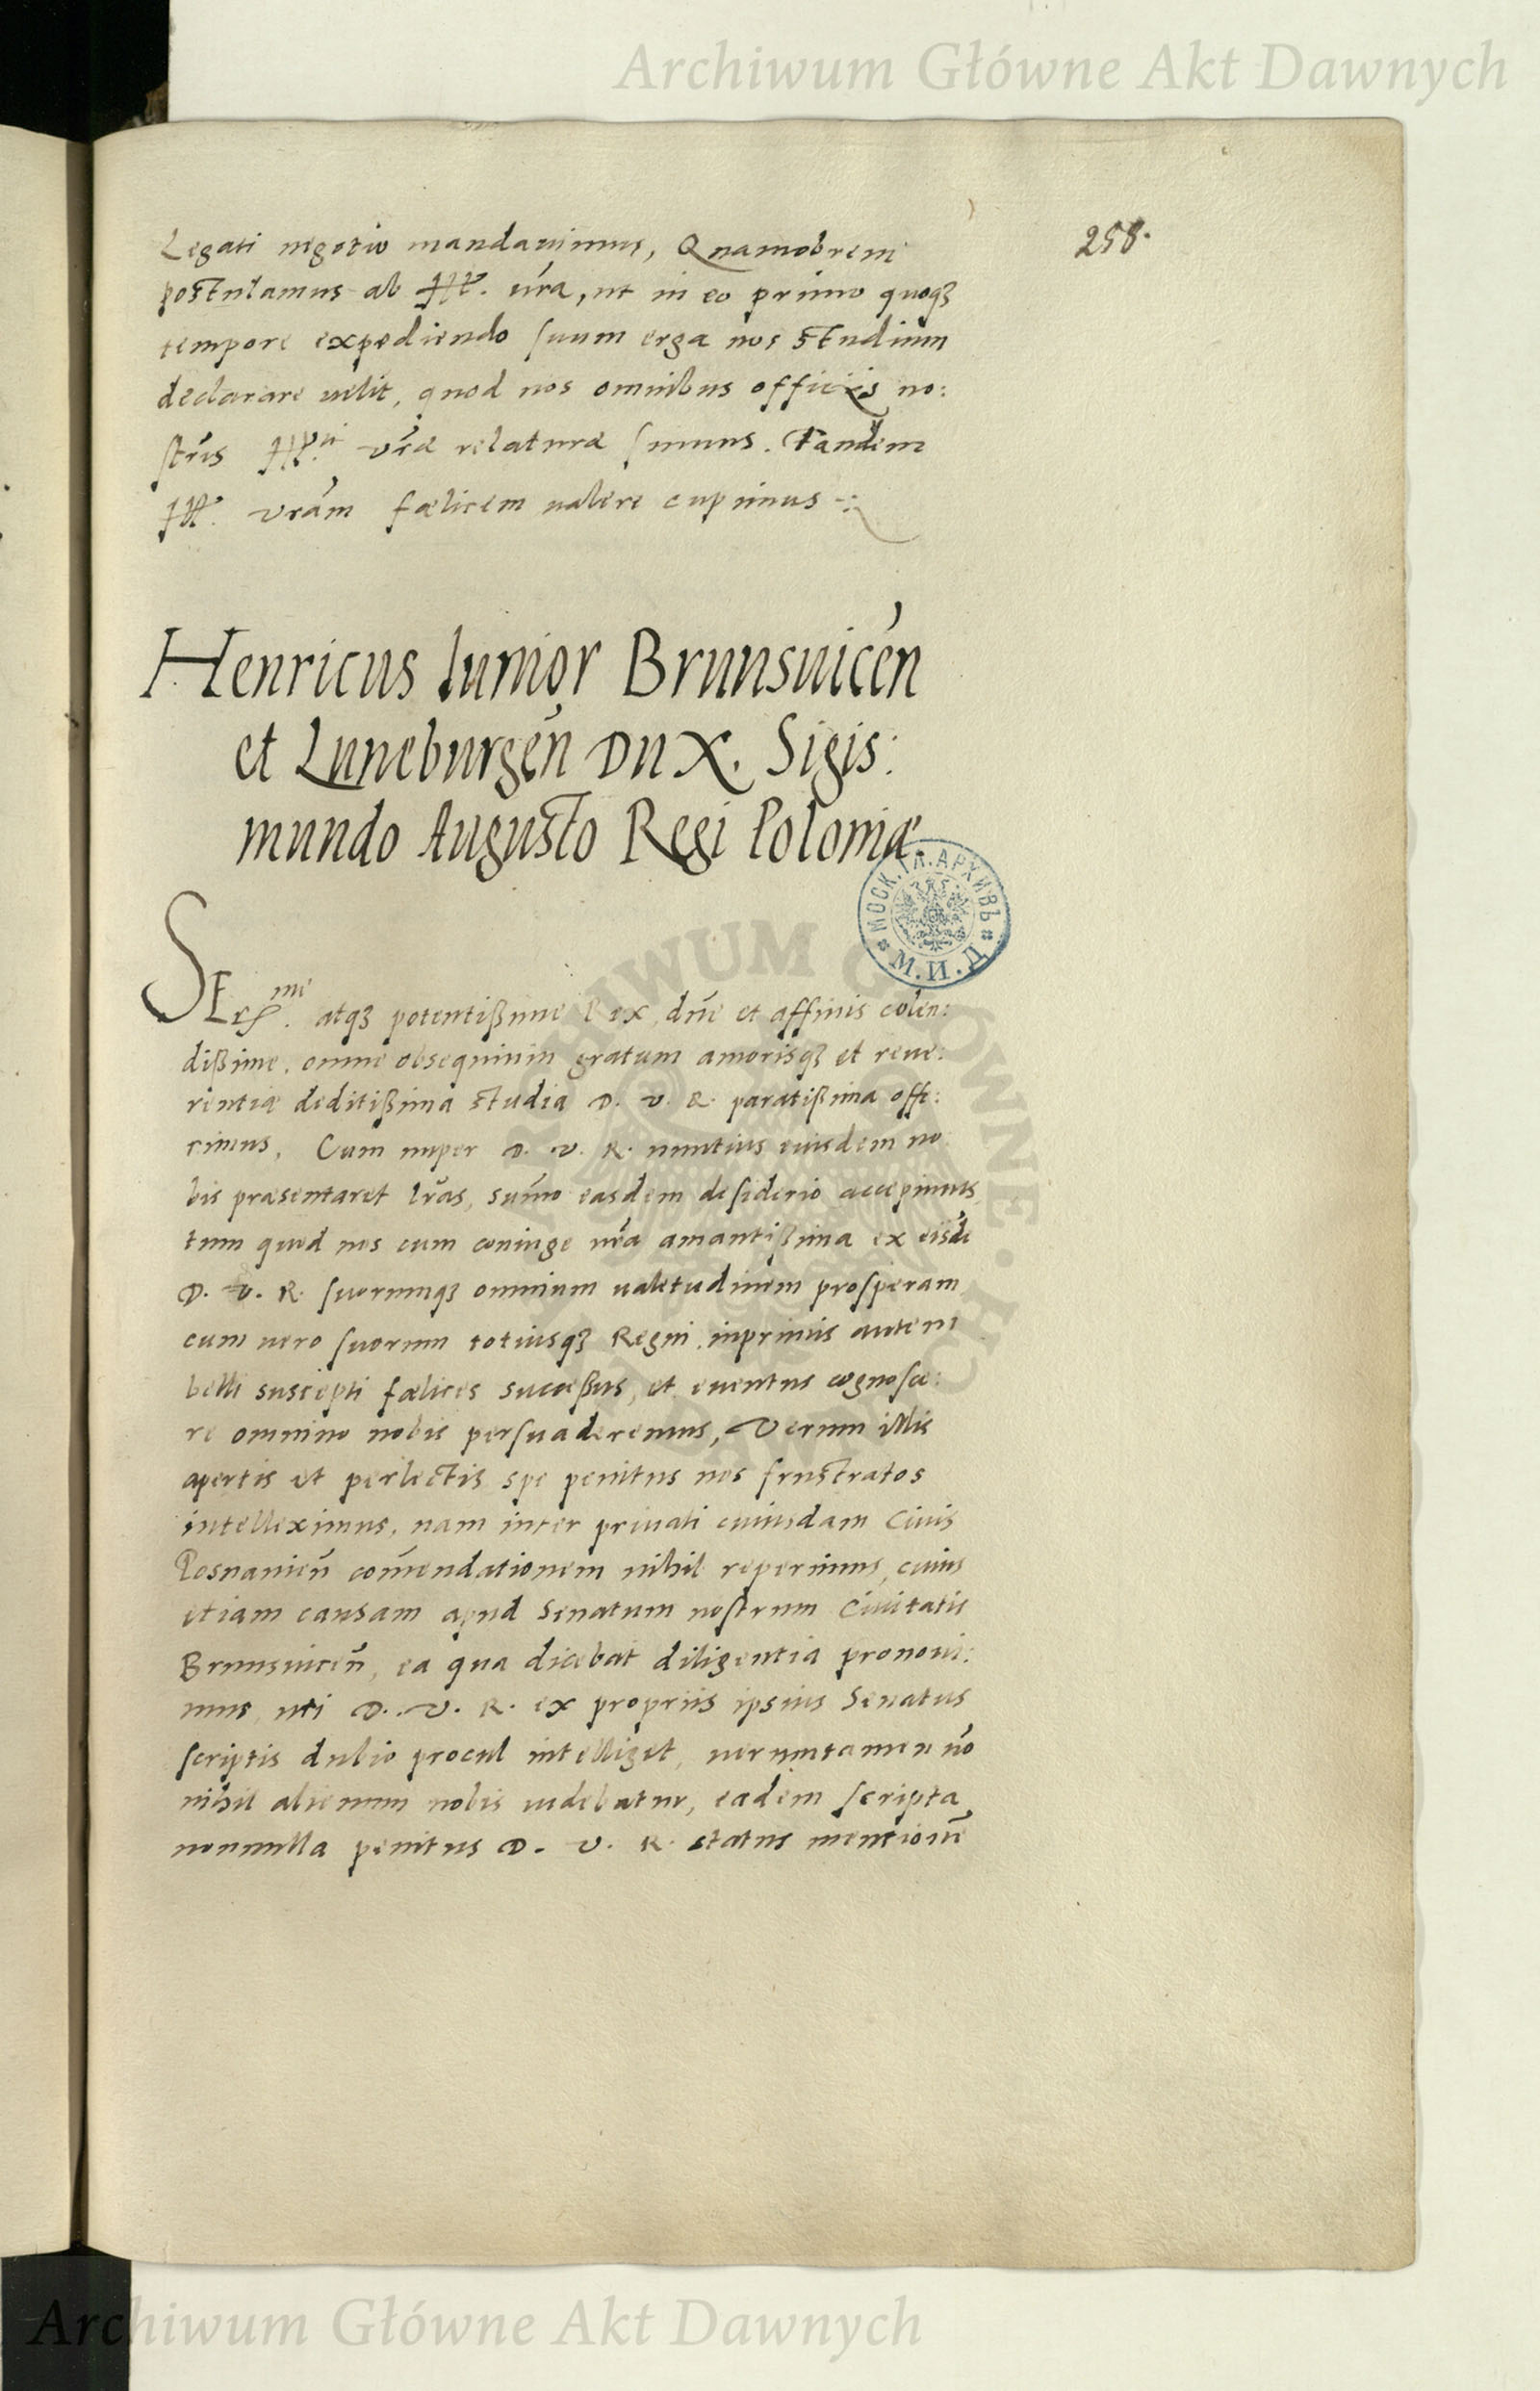 Archiwum Główne Akt Dawnych
258.
Legati negotio mandauimus, Quamobrem
postulamus ab Ill. vr̃a, ut in eo primo quoqꝫ
tempore expediendo suum erga nos studium
declarare uelit, quod nos omnibus officijs no:
str̃is vr̃æ relaturæ sumus. Tandem
Ill. vr̃am fœlicem ualere cupimus
Henricus Iunior Brunsuicen̄
et Luneburgen̄ Dux. Sigis:
mundo Augusto Regi Poloniæ.
МОСК. ГЛ. АРХИВЪ
М. И. Д.
SEr.me atqꝫ potentißime Rex, dn̄e et affinis colen:
dißime, omne obsequium gratum amorisqꝫ et reue:
rentiæ deditißima studia D. V. R. paratißima offe:
rimus, Cum nuper D. V. R. nuntius eiusdem no
bis præsentaret lr̃as, sum̄o easdem desiderio accepimus,
tum quod nos cum coniuge nr̃a amantißima ex eisdē
D. V. R. suorumqꝫ omnium ualetudinem prosperam
cum uero suorum totiusqꝫ Regni inprimis autem
belli suscepti fœlices succeßus, et euentus cognosce:
re omnino nobis persuaderemus, Verum illis
apertis et perlectis spe penitus nos frustratos
intelleximus, nam inter priuati cuiusdam Ciuis
Posnanien̄ com̄endationem nihil reperimus, cuius
etiam causam apud Senatum nostrum Ciuitatis
Brunsuicen̄, ea qua dicebat diligentia promoui:
mus, uti D. V. R. ex propriis ipsius Senatus
scriptis dubio procul intelliget, ueruntamen nō
nihil alienum nobis uidebatur, eadem scripta
nonnulla penitus D. V. R. status mentionē
Archiwum Główne Akt Dawnych